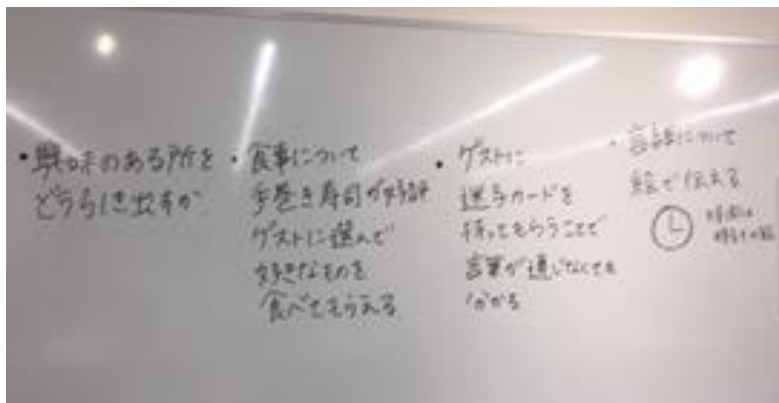 ・興味のある所を
どう引き出すか
・食事について
手巻き寿司が好評
ゲストに選んで
好きなものを
食べてもらえる
・ゲストに
迷子カードを
持ってもらうことで
言葉が通じなくても
分かる
・言語について
絵で伝える
時間は